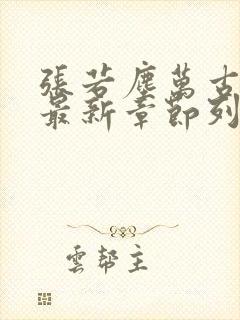 張若塵萬古
最新章節列
雲幫主